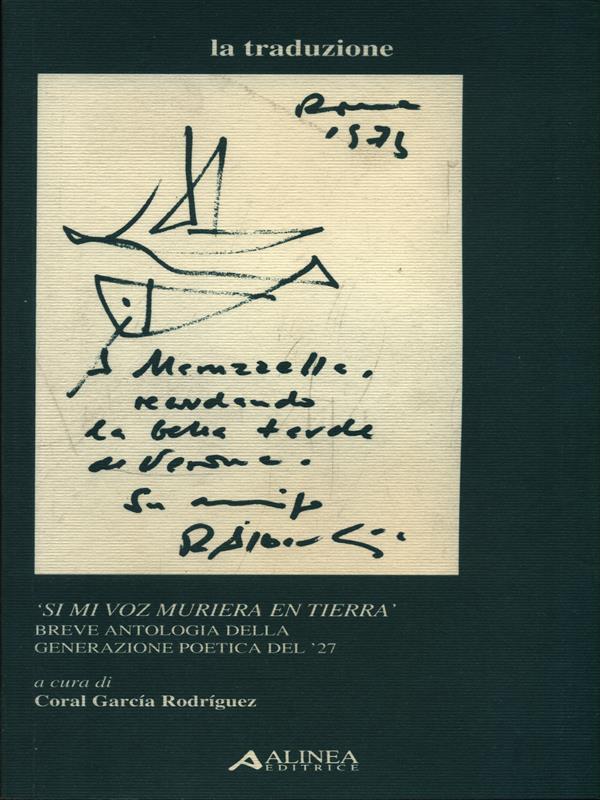 la traduzione
Roma
1973
A Maruzzella,
recordando
la bella tarde
de Verona.
Su amigo
R. Alberti
'SI MI VOZ MURIERA EN TIERRA'
BREVE ANTOLOGIA DELLA
GENERAZIONE POETICA DEL '27
a cura di
Coral García Rodríguez
ALINEA
EDITRICE